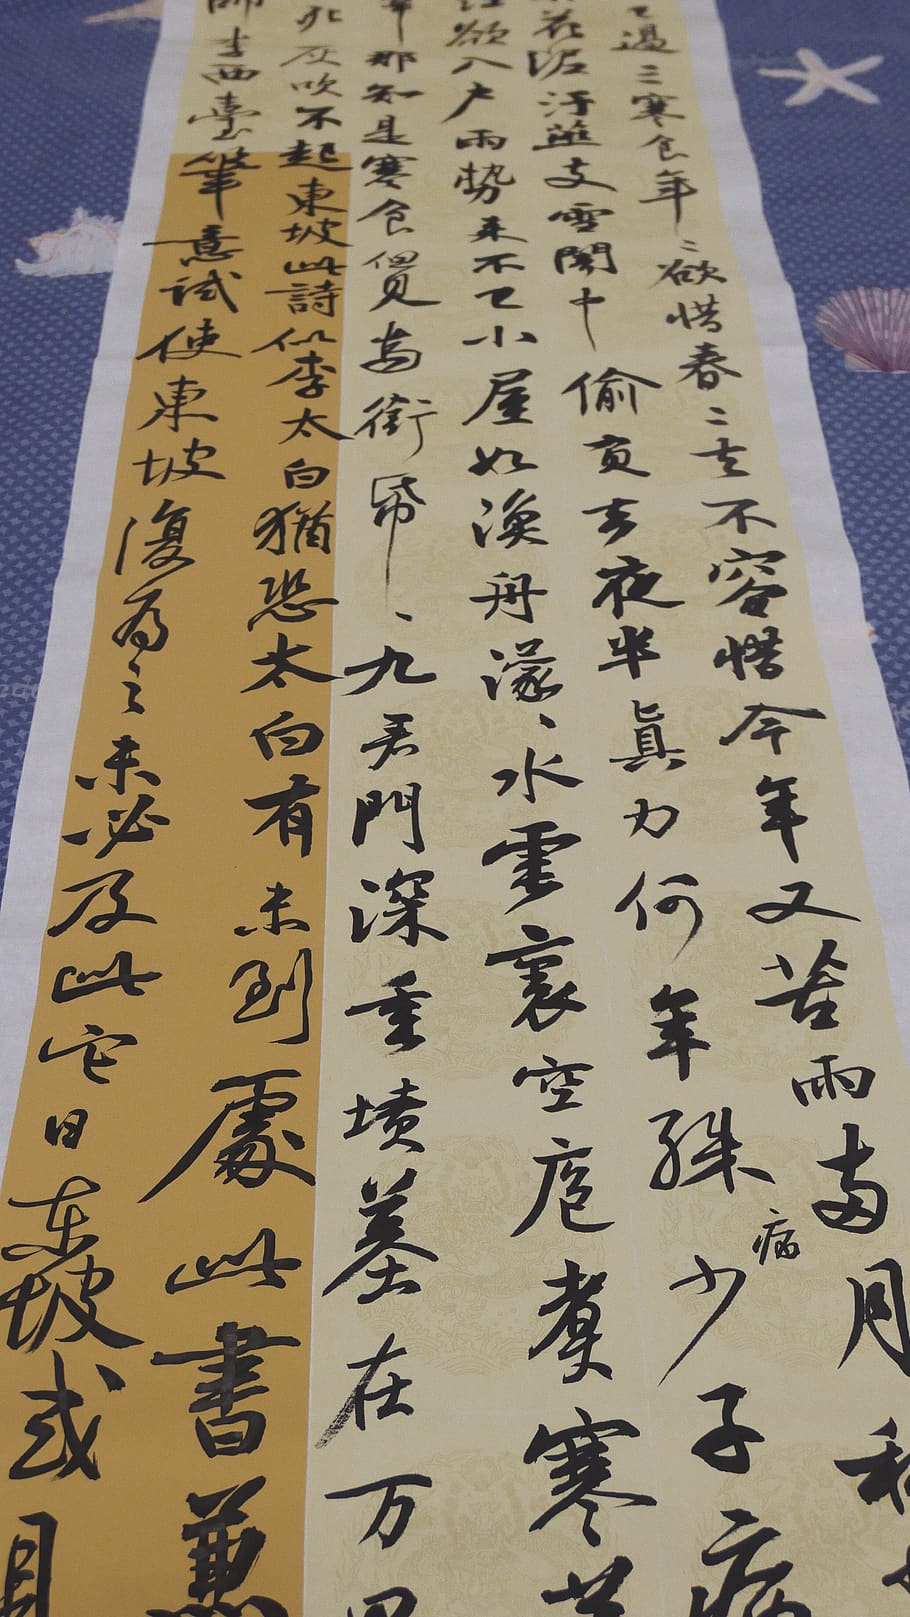 已過三寒食年〻欲惜春〻去不容惜今年又苦雨兩月秋
花泥汙燕支雪闇中偷負去夜半眞力何年殊少病子病
江欲入戶雨勢來不已小屋如漁舟濛、水雲裏空庖煑寒菜
葦那知是寒食但見烏銜帋、九君門深重墳墓在万里
死灰吹不起東坡此詩似李太白猶恐太白有未到處此書兼
師李西臺筆意試使東坡復為之未必及此它日東坡或見